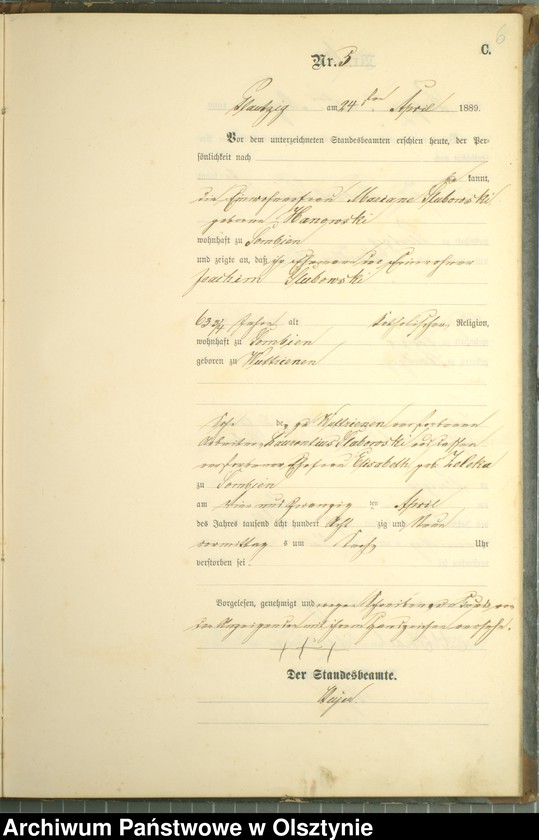 6
C.
Nr. 3
am 24 ten April 1889.
Vor dem unterzeichneten Standesbeamten erschien heute, der Per-
sönlichkeit nach
kannt,
die Einwohnerfrau Mariane Slubowski
geborne Hanowski
wohnhaft zu Tombien
und zeigte an, daß ihr Ehemann der Einwohner
Joachim Slubowski
63 3/4 Jahre alt katholischer Religion,
wohnhaft zu Tombien
geboren zu Wuttrienen
Sohn des zu Wuttrienen verstorbenen
Arbeiters Laurentius Slubowski und dessen
verstorbenen Ehefrau Elisabeth geb.
zu Tombien
am vier und zwanzig ten April
des Jahres tausend acht hundert acht zig und neun
vormittag s um sechs Uhr
verstorben sei.
Vorgelesen, genehmigt und wegen Schreibensunkunde von
der Anzeigenden mit ihrem Handzeichen versehen.
+ + +
Der Standesbeamte.
Archiwum Państwowe w Olsztynie